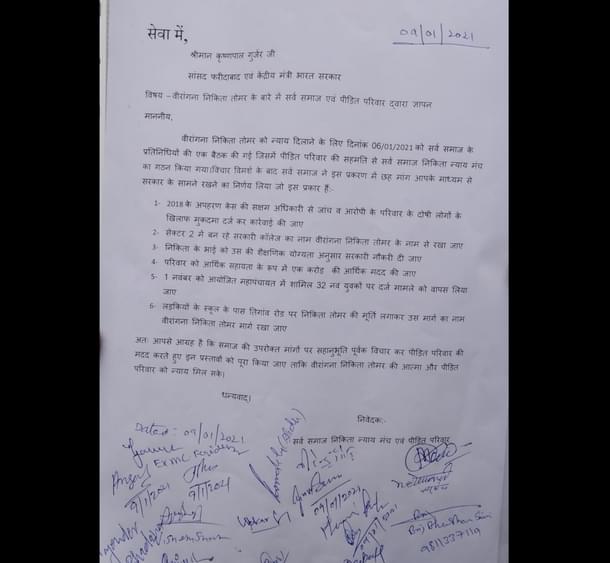 सेवा में,
09/01/2021
श्रीमान कृष्णपाल गुर्जर जी
सांसद फरीदाबाद एवं केंद्रीय मंत्री भारत सरकार
विषय – वीरांगना निकिता तोमर के बारे में सर्व समाज एवं पीड़ित परिवार द्वारा ज्ञापन
माननीय,
वीरांगना निकिता तोमर को न्याय दिलाने के लिए दिनांक 06/01/2021 को सर्व समाज के
प्रतिनिधियों की एक बैठक की गई जिसमें पीड़ित परिवार की सहमति से सर्व समाज निकिता न्याय मंच
का गठन किया गया।विचार विमर्श के बाद सर्व समाज ने इस प्रकरण में छह मांग आपके माध्यम से
सरकार के सामने रखने का निर्णय लिया जो इस प्रकार हैं:-
1- 2018 के अपहरण केस की सक्षम अधिकारी से जांच व आरोपी के परिवार के दोषी लोगों के
खिलाफ मुकदमा दर्ज कर कार्रवाई की जाए
2- सेक्टर 2 में बन रहे सरकारी कॉलेज का नाम वीरांगना निकिता तोमर के नाम से रखा जाए
3- निकिता के भाई को उस की शैक्षणिक योग्यता अनुसार सरकारी नौकरी दी जाए
4- परिवार को आर्थिक सहायता के रूप में एक करोड़ की आर्थिक मदद की जाए
5- 1 नवंबर को आयोजित महापंचायत में शामिल 32 नव युवकों पर दर्ज मामले को वापस लिया
जाए
6- लड़कियों के स्कूल के पास तिगांव रोड पर निकिता तोमर की मूर्ति लगाकर उस मार्ग का नाम
वीरांगना निकिता तोमर मार्ग रखा जाए
अतः आपसे आग्रह है कि समाज की उपरोक्त मांगों पर सहानुभूति पूर्वक विचार कर पीड़ित परिवार की
मदद करते हुए इन प्रस्तावों को पूरा किया जाए ताकि वीरांगना निकिता तोमर की आत्मा और पीड़ित
परिवार को न्याय मिल सके।
धन्यवाद।
निवेदक:-
सर्व समाज निकिता न्याय मंच एवं पीड़ित परिवार
Dated: 09/01/2021
9/1/2021
9/1/2021
09/01/2021
9811337119